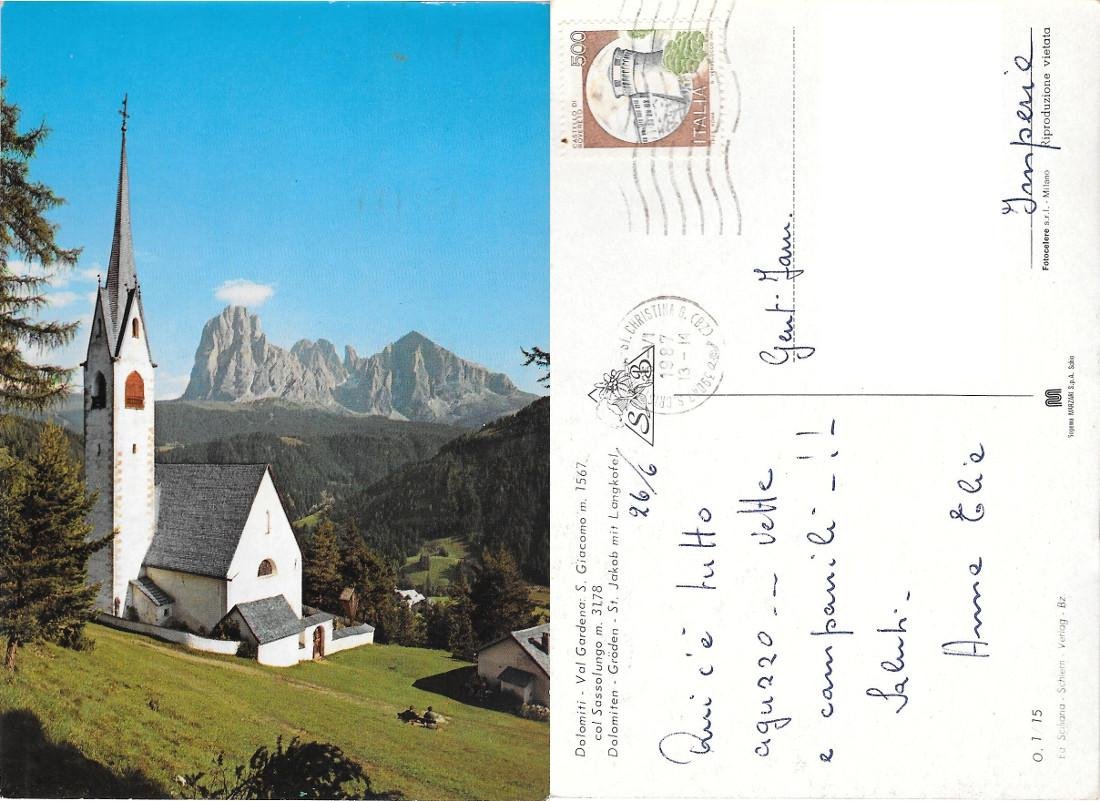 Dolomiti - Val Gardena: S. Giacomo m. 1567
col Sassolungo m. 3178
Dolomiten - Gröden - St. Jakob mit Langkofel
26/6
Qui c'è tutto
aguzzo -- vette
e campanili - !!
Saluti -
Anna Elia
O. 1 15
Ed. Sciliana - Schlern - Verlag - Bz.
500
CASTELLO DI
ROVERETO
ITALIA
ST. CHRISTINA G. (BZ)
1987
13-14
S B
Gent. Fam.
Imperia
Fotocelere s.r.l. - Milano Riproduzione vietata
MARZARI S.p.A. Schio